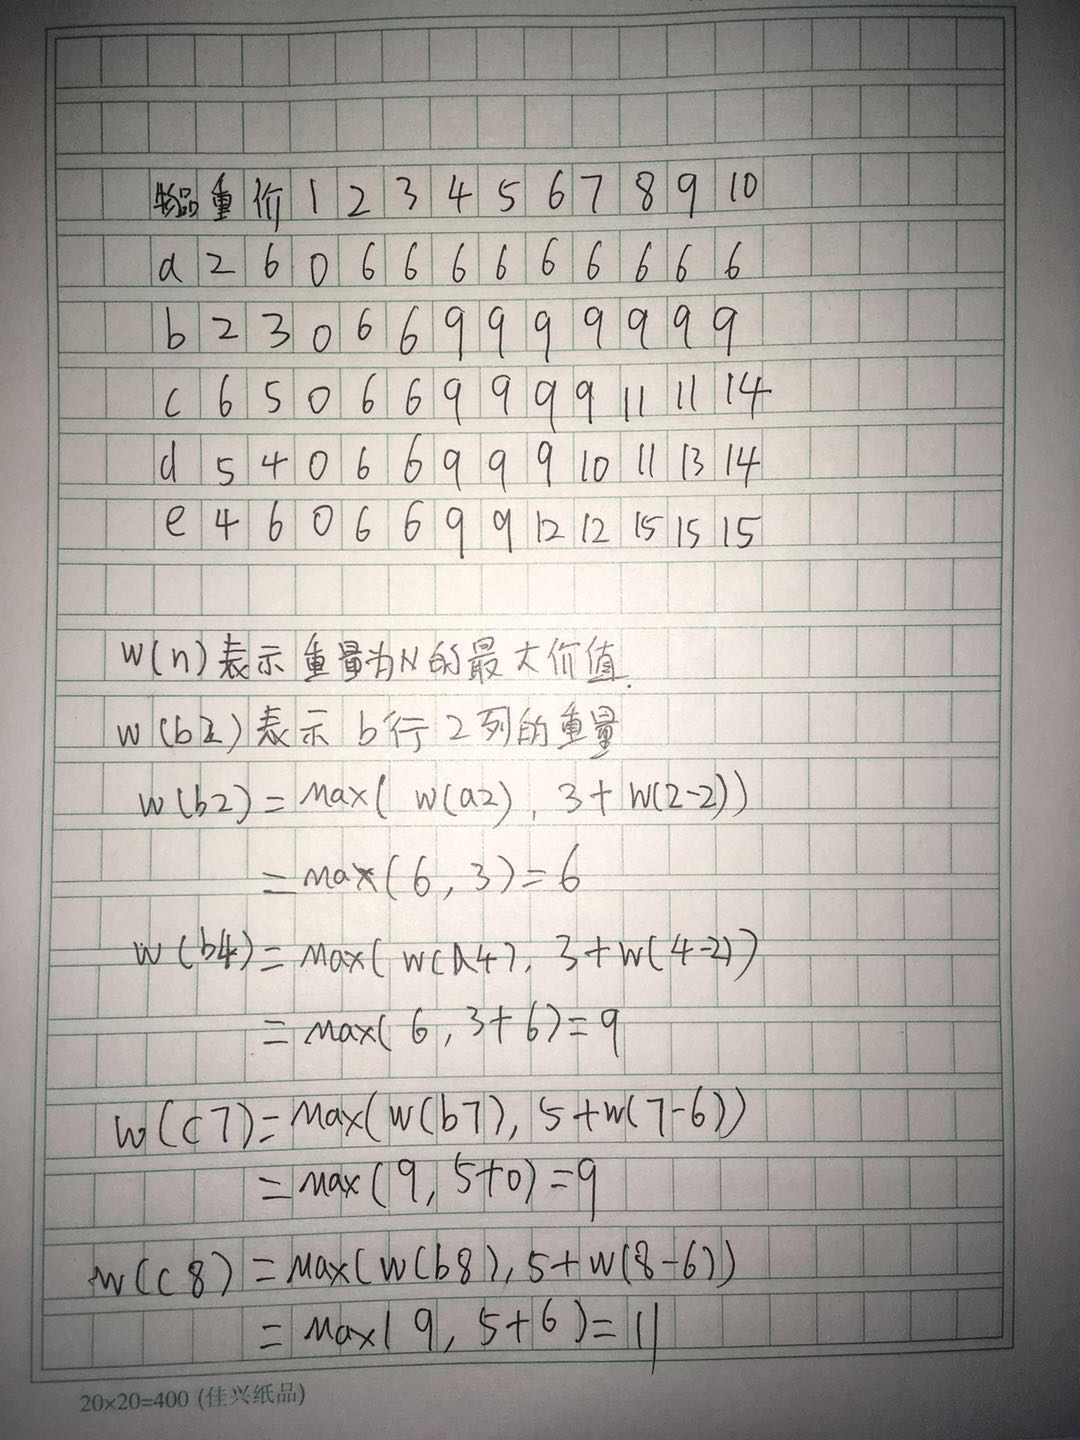 物品 重 价 1 2 3 4 5 6 7 8 9 10
a 2 6 0 6 6 6 6 6 6 6 6 6
b 2 3 0 6 6 9 9 9 9 9 9 9
c 6 5 0 6 6 9 9 9 9 11 11 14
d 5 4 0 6 6 9 9 9 10 11 13 14
e 4 6 0 6 6 9 9 12 12 15 15 15
W(n)表示重量为N的最大价值.
W(b2)表示 b行2列的重量
W(b2)=Max( W(a2), 3+W(2-2))
=Max(6,3)=6
W(b4)=Max(W(A4), 3+W(4-2))
=Max(6,3+6)=9
W(c7)=Max(W(b7), 5+W(7-6))
=Max(9,5+0)=9
W(c8)=Max(W(b8), 5+W(8-6))
=Max(9,5+6)=11
20×20=400 (佳兴纸品)